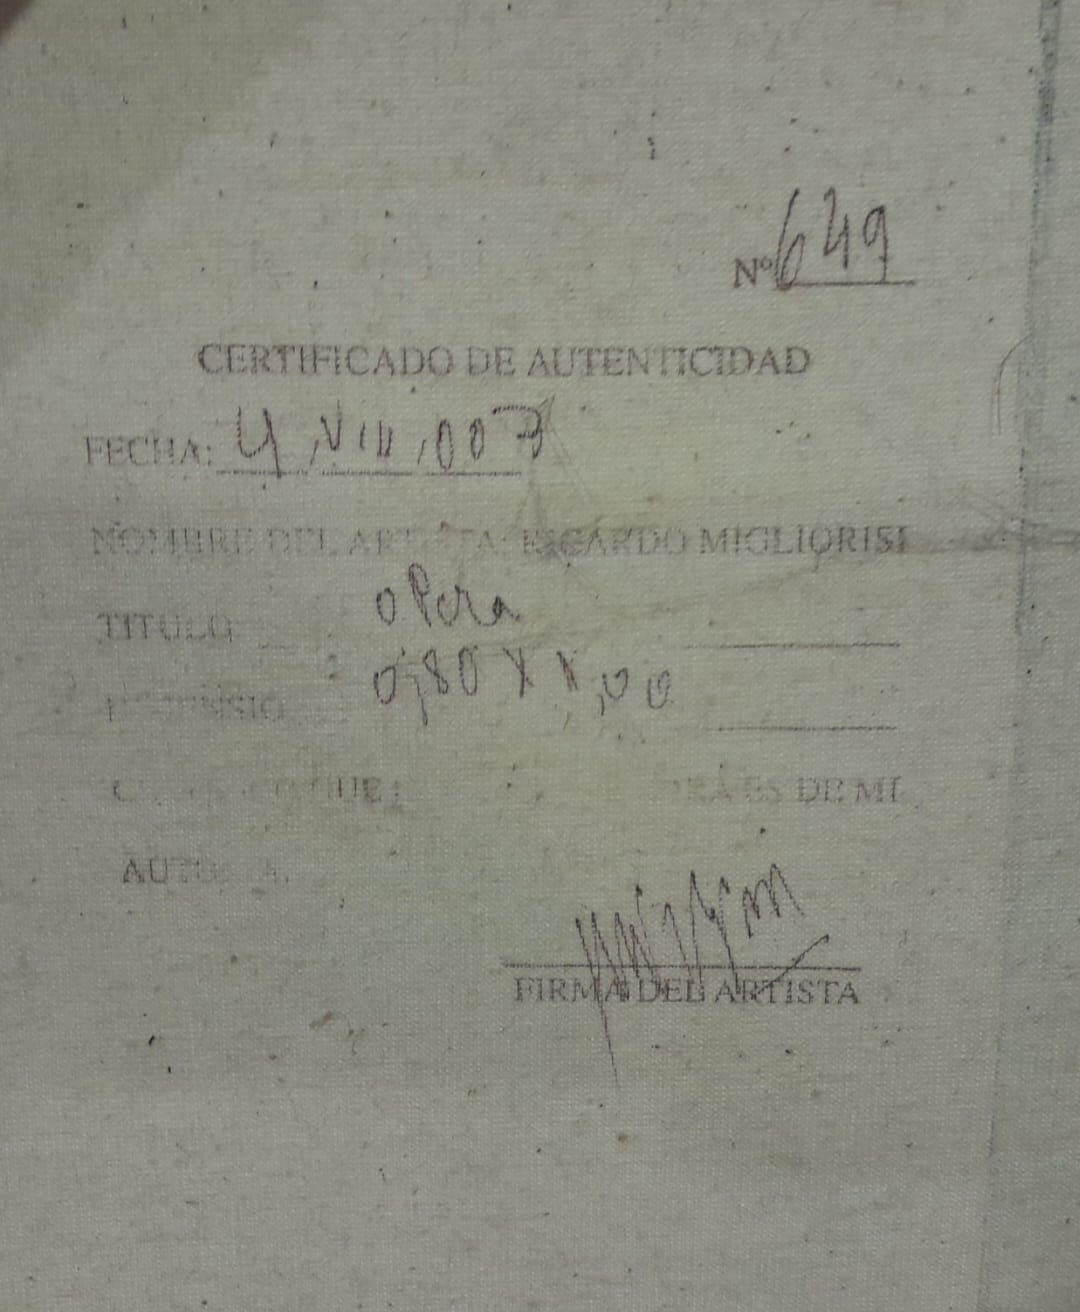 Nº 649
CERTIFICADO DE AUTENTICIDAD
FECHA: 4, VIII, 007
NOMBRE DEL ARTISTA: RICARDO MIGLIORISI
TITULO opera
0,80 X
ES DE MI
FIRMA DEL ARTISTA